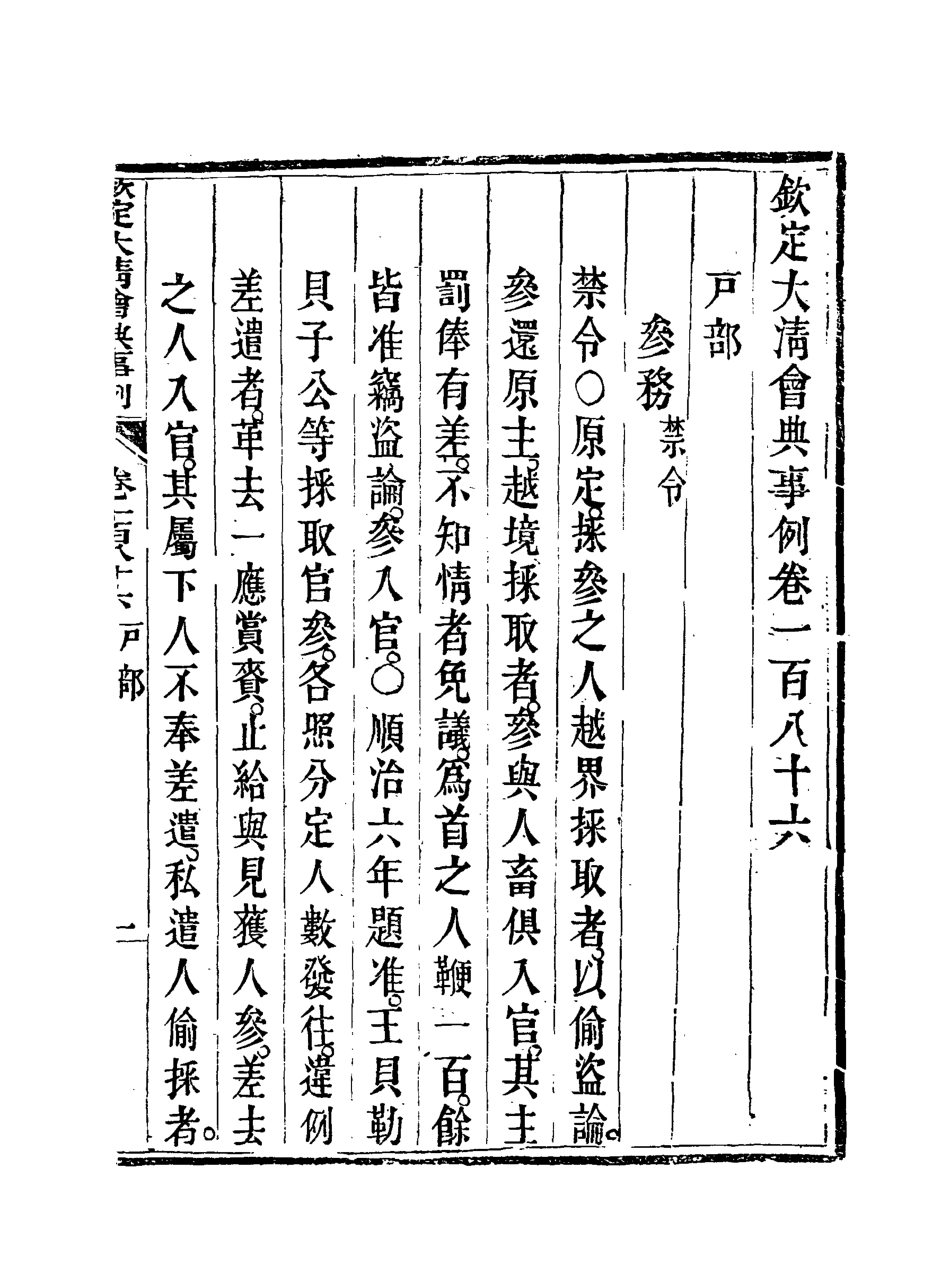 欽定大清會典事例卷一百八十六
戶部
參務禁令
禁令〇原定。採參之人越界採取者。以偷盜論。
參還原主。越境採取者。參與人畜俱入官。其主
罰俸有差。不知情者免議。爲首之人鞭一百。餘
皆准竊盜論。參入官。〇順治六年題准。王貝勒
貝子公等採取官參。各照分定人數發往。違例
差遣者。革去一應賞賚。止給與見獲人參。差去
之人入官。其屬下人不奉差遣。私遣人偷採者。
欽定大清會典事例 卷一百八十六 戶部 一